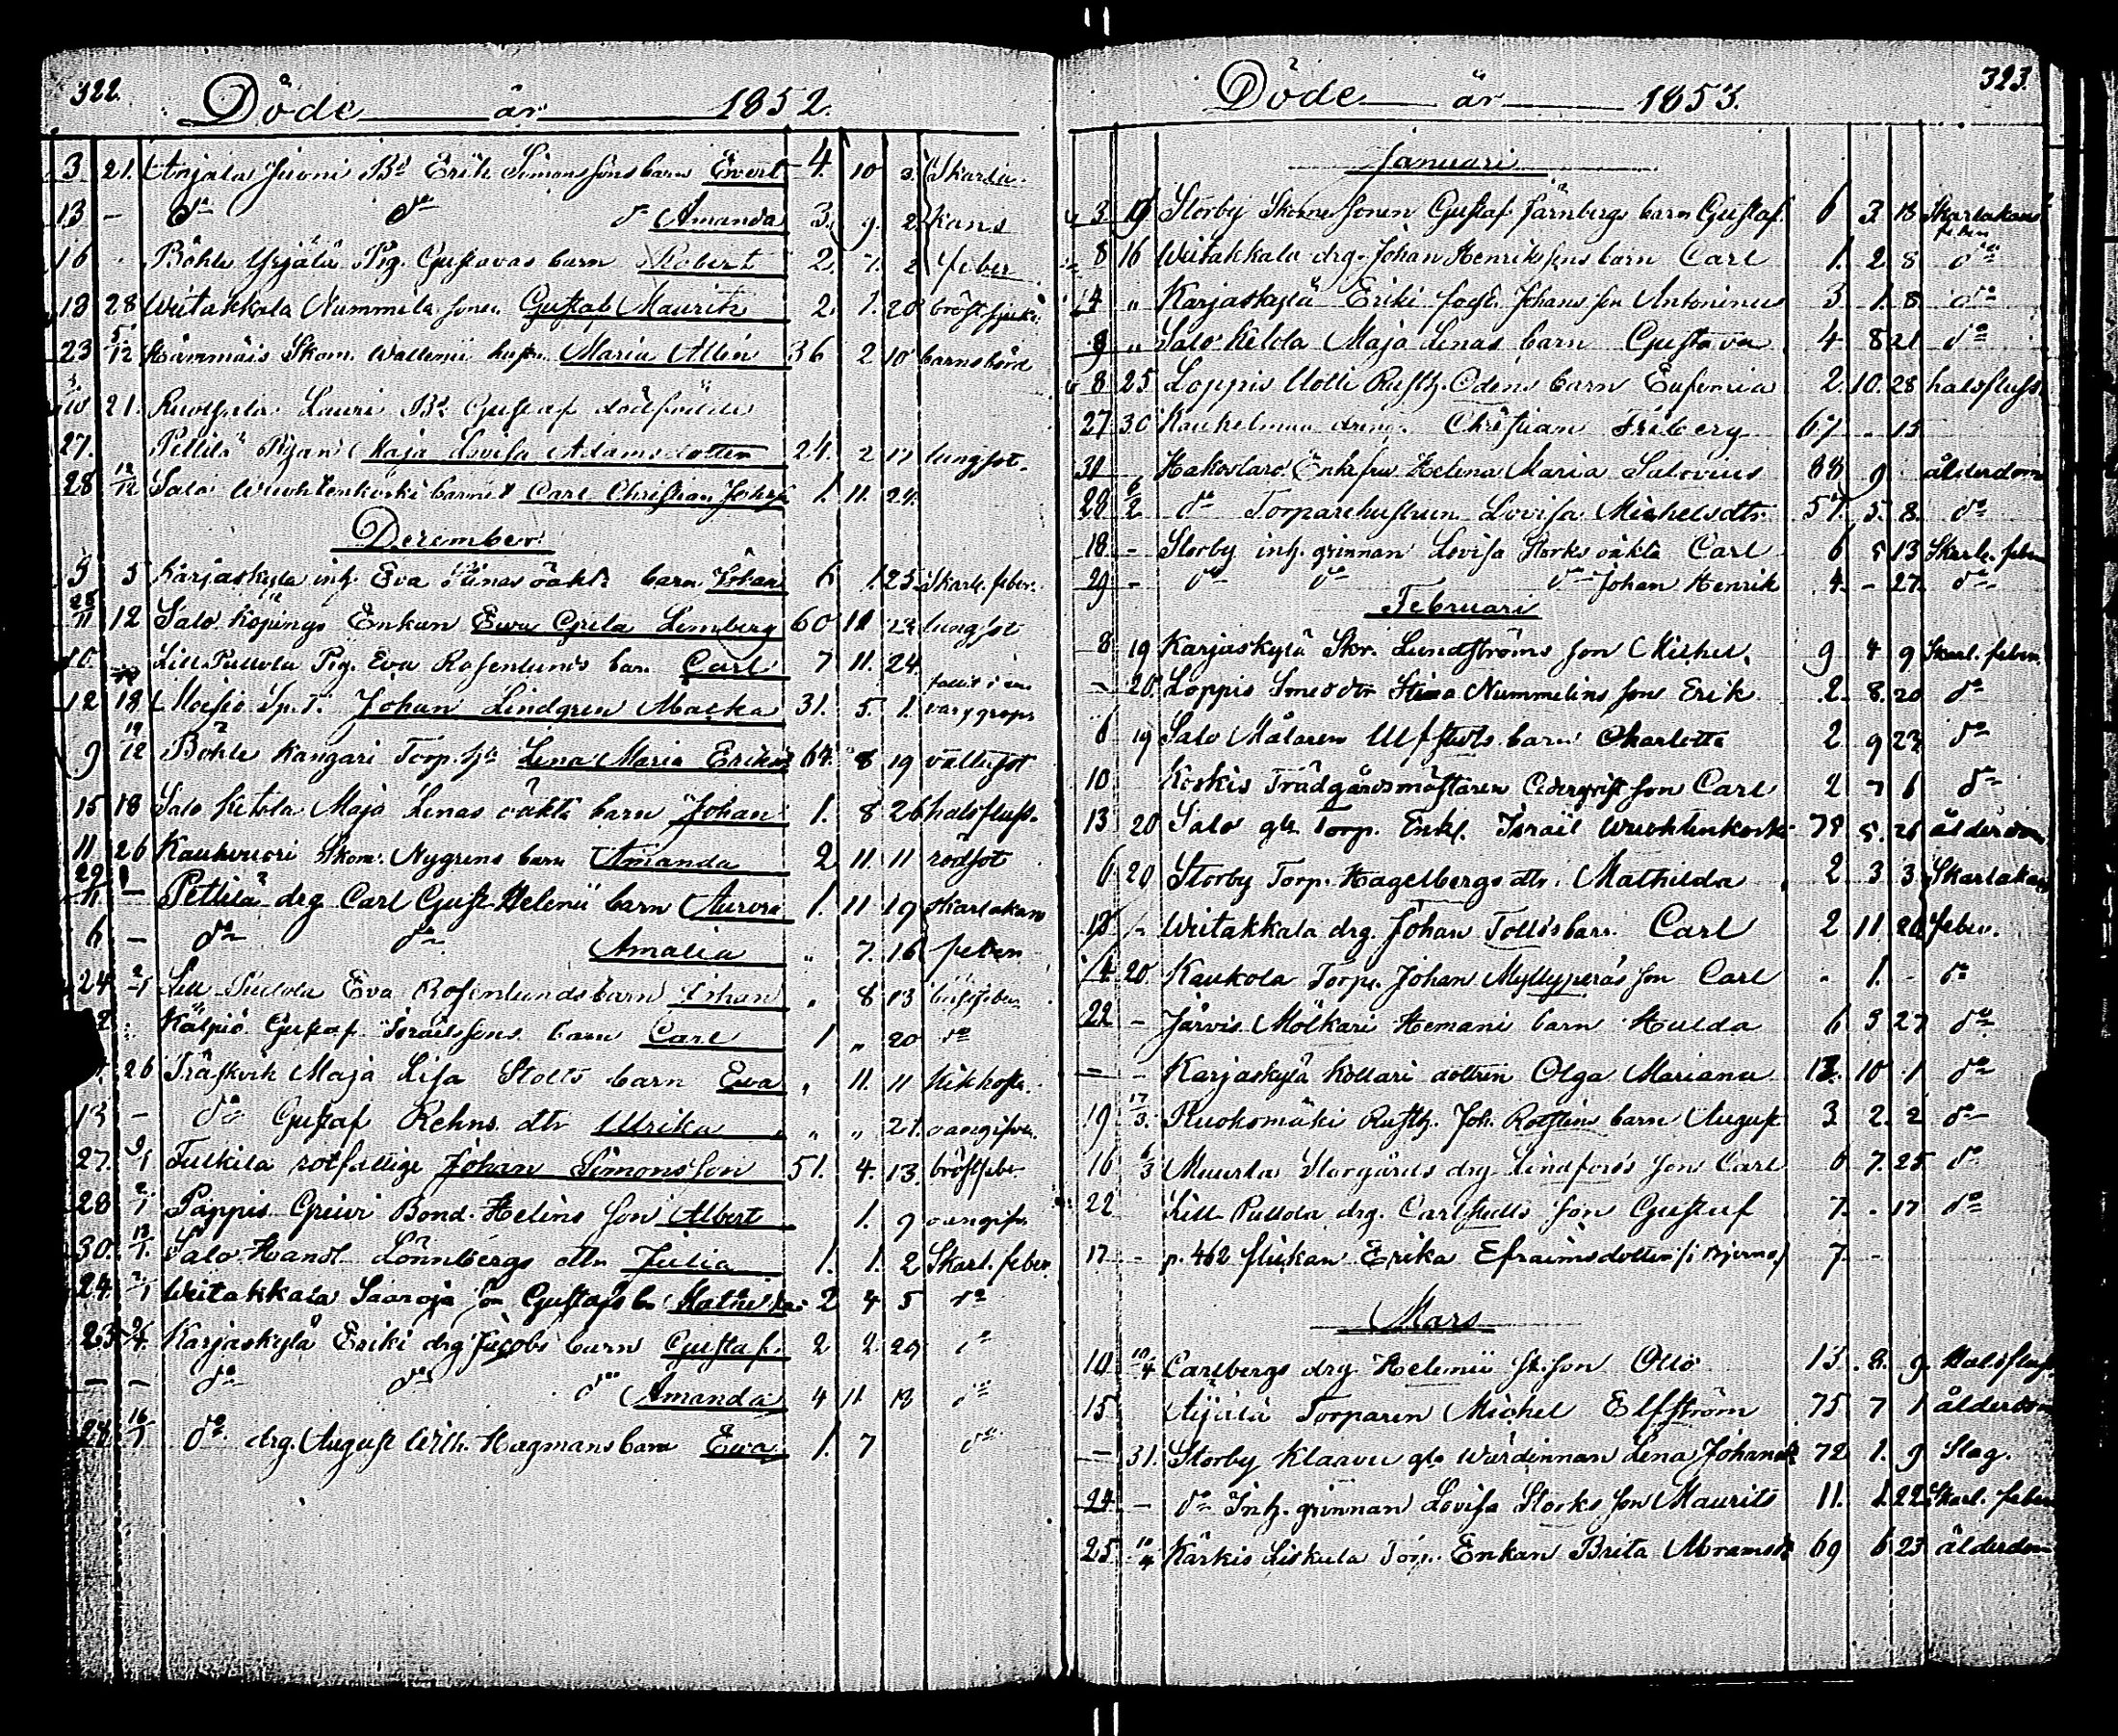 322.
Döde år 1852.
3 21. Anjala Juoni Bd Erik Simonssons barn Evert 4. 10 3. Skarla-
13 - do do do Amanda 3. 9. 2. kans
16 Böhle Yrjälä Pig. Gustavas barn Robert 2. 7. 2 feber
18 28 Wiitakkala Nummila sonen Gustaf Mauritz 2. 1. 20
23 5/12 Skom. Wallenii hustru Maria Allén 36 2 10 barnsbörd
21. Lauri Bd Gustaf dödfödde
27. Pettilä Pigan Maja Lovisa Adamsdotter 24. 2 17 lungsot.
28 12/12 Salo Wuohtenkoski barnet Carl Christian 1. 11. 24.
December
5 5 Karjaskylä inh. Eva Stinas oäkt. barn Johan 6 1 25 Skarl. feber.
28/11 12 Salo Köpings Enkan Ewa Greta Lemberg 60 11 23 lungsot
10. Lill Pullola Pig. Eva Rosenlunds bar. Carl 7 11. 24.
12 18 Moisio Sp.T. Johan Lindgren Macka 31. 5. 1. fallit i en varggrop
9 19/12 Böhle Kangari Torp. H. Lena Maria Eriksd 64. 8 19 vattusot
15 18 Salo Ketola Maja Lenas oäkta barn Johan 1. 8 26 halsfluss.
11 26 Kaukvuori Skom. Nygrens barn Amanda 2 11. 11 rödsot
29/11 - Pettilä drg Carl Gust. Helenii barn Aurora 1. 11 19 Skarlakans
6 - do do Amalia " 7. 16 feber
24 2/1 Lill Pullola Eva Rosenlunds barn Johan " 8 13
Gustaf Israelssons barn Carl 1 " 20 do
26 Träskvik Maja Lisa Stolts barn Ewa " 11. 11 Kikhosta.
13 - do Gustaf Rehns dtr Ulrika " " 21. oangifven.
27. 9/1 Tulkila rotfattige Johan Simonsson 51. 4. 13. bröstfeber
28 2/1 Pappis Greivi Bond. Helins son Albert 1. 9 oangifv.
30. 13/1 Salo Handl. Lönnbergs dtr Julia 1. 1. 2 Skarl. feber
24. 2/1 Wiitakkala Saaroja Gustafs b. Mathilda 2 4 5 do
23 Karjaskylä Eriki drg Jacobs barn Gustaf 2 2. 29 do
- - do do do Amanda 4 11 13 do
28 16/1 do drg. August Wilh. Hagmans barn Ewa 1. 7 do
323.
Döde år 1853.
Januari
3 19 Storby Skomr sonen Gustaf Järnbergs barn Gustaf. 6 3 18 Skarlakans feber
8 16 Wiitakkala drg. Johan Henrikssons barn Carl 1. 2 8 do
14 " Karjaskylä Eriki Johans son Antoninus 3 1. 8 do
9 " Salo Ketola Maja Lenas barn Gustava 4 8 21 do
8 25 Loppis Uotti Rusth. Odens barn Eufemia 2 10. 28 halsfluss.
27 30 dreng. Christian Friberg 67 - 15
31 Hakostaro Enkefru Helena Maria Salovius 88 9 ålderdom
28 6/2 do Torparehustrun Lovisa Michelsdtr 57. 5. 8. do
18 - Storby inh. qvinnan Lovisa Storks oäkta Carl 6 5 13 Skarl. feber
29 - do do do Johan Henrik 4 - 27. do
Februari
8 19 Karjaskylä Skr. Lundströms son Michel. 9 4 9 Skarl. feber.
- 20 Loppis Smedsdtr Stina Nummelins son Erik 2. 8. 20 do
6 19 Salo Målaren Ulfstedts barn Charlotta 2 9 23 do
10 Koskis Trädgårdsmästaren Cederqvist son Carl 2 7 6 do
13 20 Salo gl. Torp. Enkl. Israël Wuohtenkoski 78 5. 26 ålderdom
6 20 Storby Torp. Hagelbergs dtr. Mathilda 2 3 3 Skarlakans
18 - Wiitakkala drg. Johan Tollis barn Carl 2 11. 20 feber.
14 20. Kaukola Torp. Johan Myllyperäs son Carl - 1. - do
22 - Järvis Mölkäri Hemani barn Hulda 6 3 27 do
- - Karjaskylä Kollari dottren Olga Mariana 12. 10 1 do
19 17/3 Ruoksmäki Rusth. Joh. Rostins barn August 3 2. 2 do
16 6/3 Muurla Storgårds drg Lindfors's son Carl 8 7. 25 do
22 Lill Pullola drg. Carlstedts son Gustaf 7. - 17 do
17 - p. 462 flickan Erika Efraimsdotter (i Bjerno) 7 -
Mars
10 10/4 Carlbergs drg Helenii st. son Otto 13. 8. 9. Halsfluss
15 Äijälä Torparen Michel Elfström 75 7 1 ålderdom
- 31. Storby Klaavu gla Wärdinnan Lena Johansd. 72 1. 9 Slag.
24 - do Inh. qvinnan Lovisa Storks son Maurits 11. 1. 22 Skarl. feber
25 10/4 Kärkis Liskula Torp. Enkan Brita Abramsdr 69 6 23 ålderdom